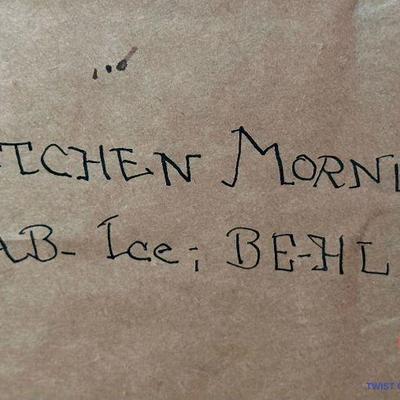 TCHEN MORNI
AB- Ice; BE-HL
TWIST